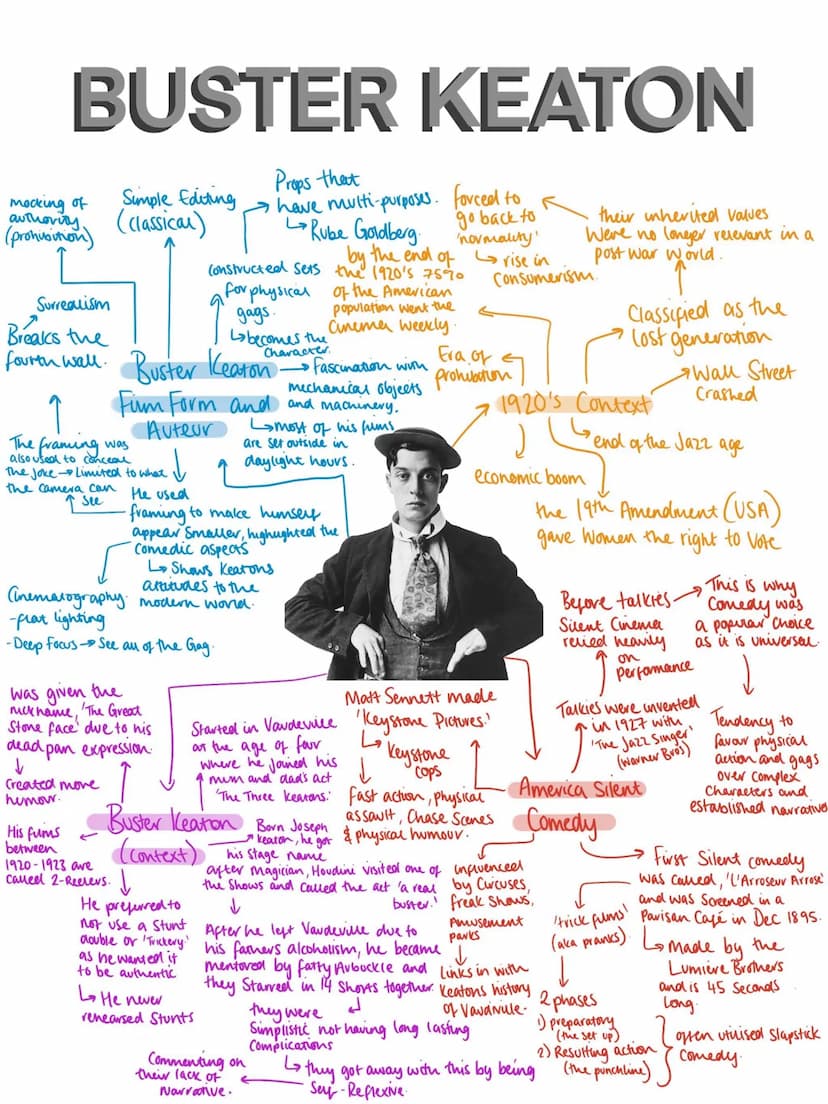 BUSTER KEATON
mocking of
authority
(prohibition)
Simple Editing
(classical)
Props that
have multi-purposes.
Rube Goldberg.
constructed sets
for physical
gags.
becomes the
character.
Surrealism
Breaks the
fourth wall.
Buster Keaton
Film Form and
Auteur
Fascination with
mechanical objects
and machinery.
most of his films
are set outside in
daylight hours.
The framing was
also used to conceal
the joke → Limited to what
the camera can
see
He used
framing to make himself
appear smaller, highlighted the
comedic aspects
Shows Keatons
attitudes to the
modern world.
Cinematography
-flat lighting
-Deep Focus → See all of the Gag.
forced to
go back to
'normality'
rise in
consumerism.
their inherited values
were no longer relevant in a
post war world.
by the end of
the 1920's 75%
of the American
population went the
cinema weekly.
Classified as the
lost generation
Era of
prohibition
Wall Street
Crashed
1920's Context
end of the Jazz age
economic boom
the 19th Amendment (USA)
gave women the right to vote
Was given the
nickname, 'The Great
Stone face' due to his
deadpan expression.
created more
humour.
Started in Vaudeville
at the age of four
where he joined his
mum and dad's act
'The Three Keatons.'
Buster Keaton
(context)
His films
between
1920-1923 are
called 2-Reelers.
Born Joseph
Keaton, he got
his stage name
after magician, Houdini visited one of
the shows and called the act 'a real
buster.'
He preferred to
not use a stunt
double or 'Trickery'
as he wanted it
to be authentic
He never
rehearsed stunts
After he left Vaudeville due to
his fathers alcoholism, he became
mentored by Fatty Arbuckle and
they starred in 14 shorts together.
they were
simplistic not having long lasting
complications
they got away with this by being
self-Reflexive.
Commenting on
their lack of
narrative.
Before talkies
Silent Cinema
relied heavily
on
performance
This is why
comedy was
a popular choice
as it is universal.
Matt Sennett made
'Keystone Pictures.'
Keystone
cops
Fast action, physical
assault, Chase Scenes
& physical humour.
Talkies were invented
in 1927 with
'The Jazz Singer'
(Warner Bros)
Tendency to
favour physical
action and gags
over complex
characters and
established narrative
America Silent
Comedy
influenced
by Circuses,
freak shows,
Amusement
parks
Links in with
Keatons history
of Vaudiville.
First Silent comedy
was called, 'L'Arroseur Arrosé'
and was screened in a
Parisan Café in Dec 1895.
made by the
Lumière Brothers
and is 45 seconds
long.
'trick films'
(aka pranks)
2 phases
1) preparatory
(the set up)
2) Resulting action
(the punchline)
often utilised slapstick
comedy.